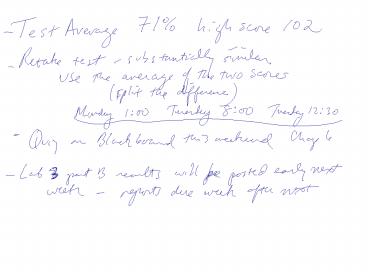 - Test Average 71% high score 102
- Retake test - substantially similar
use the average of the two scores
(split the difference)
Monday 1:00 Tuesday 8:00 Tuesday 12:30
- Quiz on Blackboard this weekend Chap 6
- Lab 3 part B results will be posted early next
week - reports due week after next